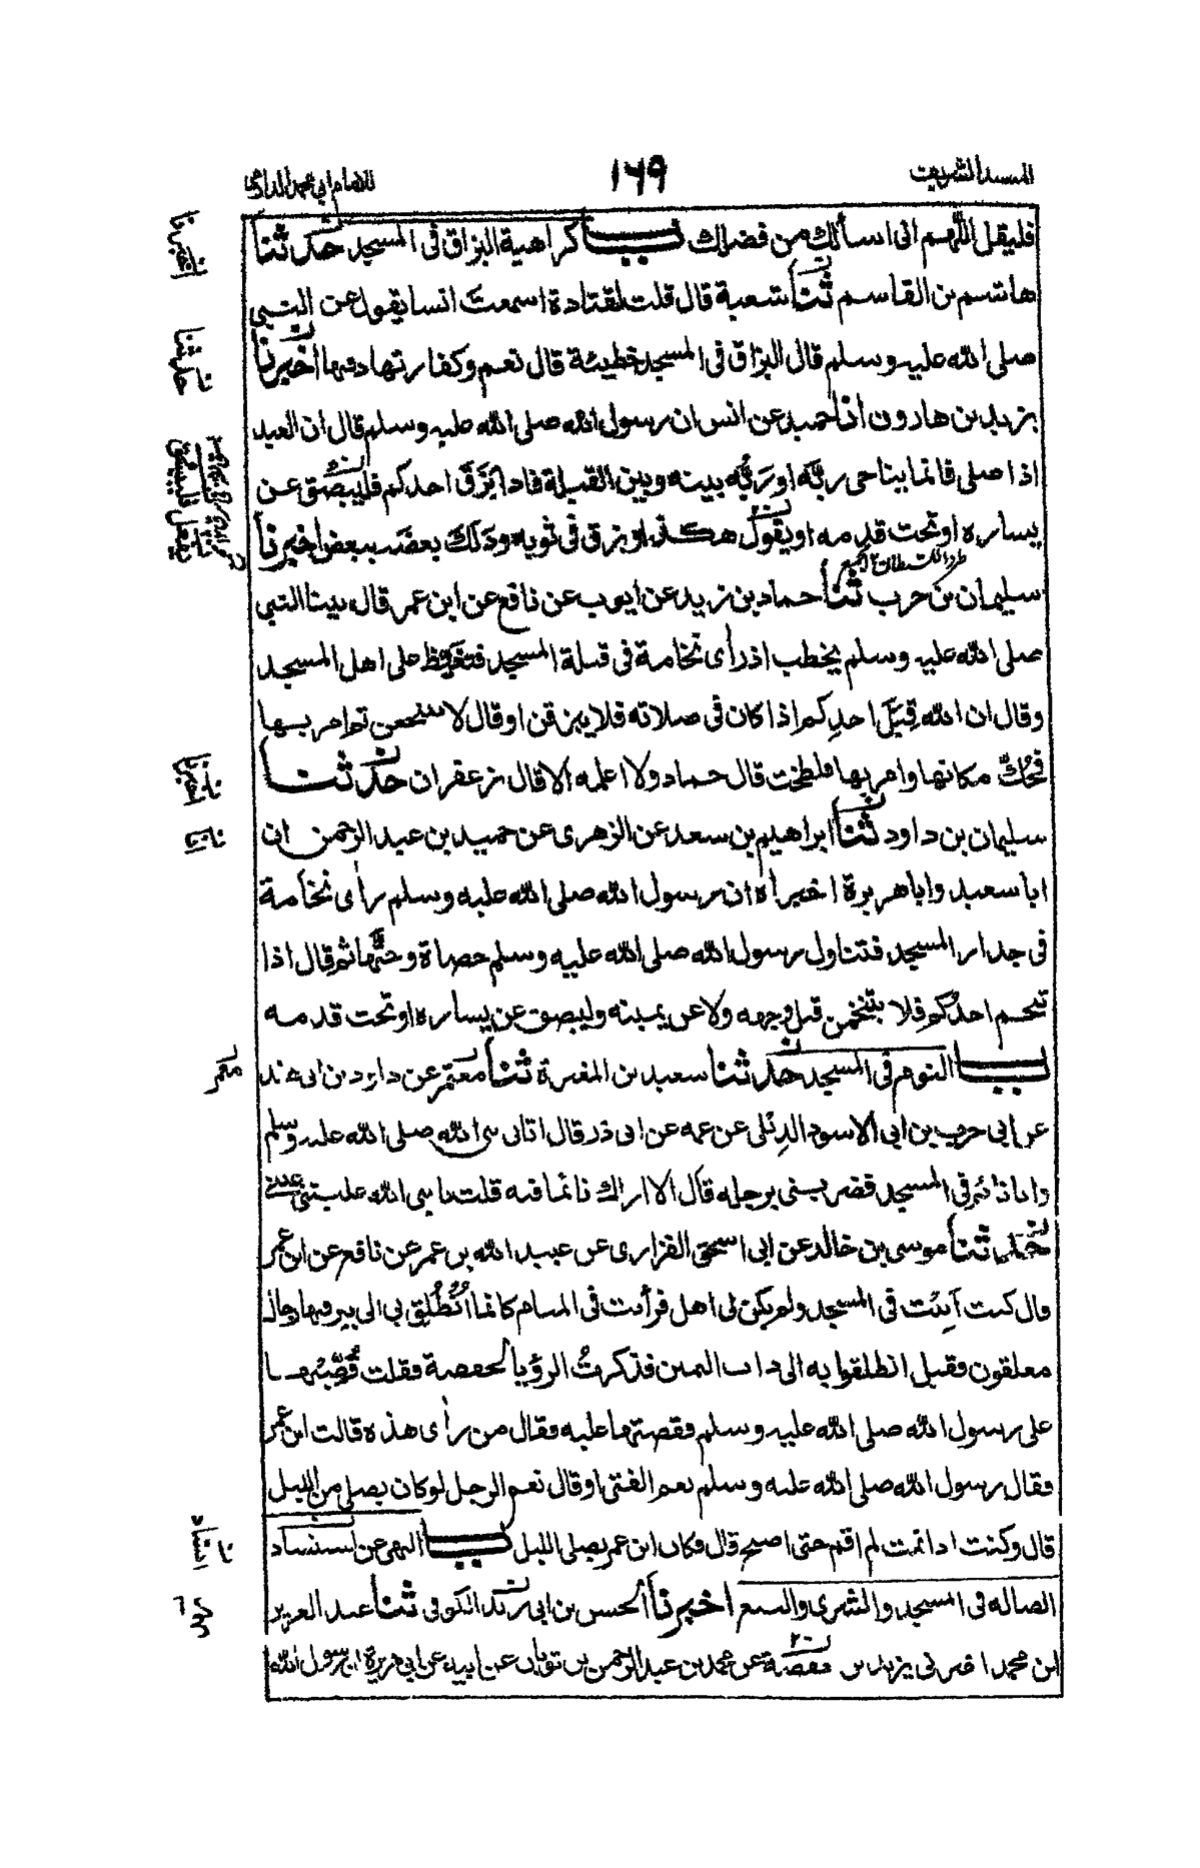 المسند الشريف ١٦٩ للامام ابي محمد الدارمي
فليقل اللهم انى اسألك من فضلك باب كراهية البزاق فى المسجد حدثنا
هاشم بن القاسم ثنا شعبة قال قلت لقتادة اسمعت انسا يقول عن النبي
صلى الله عليه وسلم قال البزاق فى المسجد خطيئة قال نعم وكفارتها دفنها اخبرنا
يزيد بن هارون انا حميد عن انس ان رسول الله صلى الله عليه وسلم قال ان العبد
اذا صلى فانما يناجى ربَّه او رَبُّه بينه وبين القبلة فاذا بَزَقَ احدكم فليبصق عن
يساره او تحت قدمه او يقول هكذا وبزق فى ثوبه ودَلَكَ بعضَه ببعض اخبرنا
سليمان بن حرب ثنا حماد بن زيد عن ايوب عن نافع عن ابن عمر قال بينا النبي
صلى الله عليه وسلم يخطب اذ رأى نخامة فى قبلة المسجد فتغيَّظ على اهل المسجد
وقال ان الله قِبَلَ احدِكم اذا كان فى صلاته فلا يبزقن او قال لا يتنخعن ثم امر بها
فحُكَّ مكانها وامر بها فلطخت قال حماد ولا اعلمه الا قال بزعفران حدثنا
سليمان بن داود ثنا ابراهيم بن سعد عن الزهرى عن حميد بن عبد الرحمن ان
ابا سعيد وابا هريرة اخبراه ان رسول الله صلى الله عليه وسلم رأى نخامة
فى جدار المسجد فتناول رسول الله صلى الله عليه وسلم حصاة وحتَّها ثم قال اذا
تنخم احدكم فلا يتنخمن قبل وجهه ولا عن يمينه وليبصق عن يساره او تحت قدمه
باب النوم فى المسجد حدثنا سعيد بن المغيرة ثنا معتمر عن داود بن ابى هند
عن ابى حرب بن ابى الاسود الدئلى عن عمه عن ابى ذر قال اتانى نبى الله صلى الله عليه وسلم
وانا نائم فى المسجد فضربنى برجله قال الا اراك نائما فيه قلت يا نبى الله غلبتنى عينى
حدثنا موسى بن خالد عن ابى اسحق الفزارى عن عبيد الله بن عمر عن نافع عن ابن عمر
قال كنت اَبِيْت فى المسجد ولم يكن لى اهل فرأيت فى المنام كانما انْطُلِق بى الى بير فيها رجال
معلقون فقيل انطلقوا به الى ذات اليمين فذكرتُ الرؤيا لحفصة فقلت قُصِّيْها
على رسول الله صلى الله عليه وسلم فقصتها عليه فقال من رأى هذه قالت ابن عمر
فقال رسول الله صلى الله عليه وسلم نعم الفتى او قال نعم الرجل لو كان يصلى من الليل
قال وكنت اذا نمت لم اقم حتى اصبح قال فكان ابن عمر يصلى الليل باب النهى عن استنشاد
الضالة فى المسجد والشرى والبيع اخبرنا الحسن بن ابى زيد الكوفى ثنا عبد العزيز
ابن محمد اخبرنى يزيد بن خصيفة عن محمد بن عبد الرحمن بن ثوبان عن ابيه عن ابى هريرة ان رسول الله
اخبرنا
حدثنا
اخبرنا